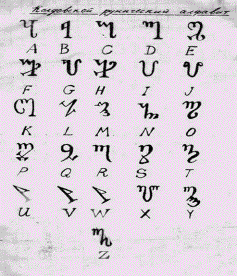 Колдовской рунический алфавит
A B C D E
F G H I J
K L M N O
P Q R S T
U V W X Y
Z